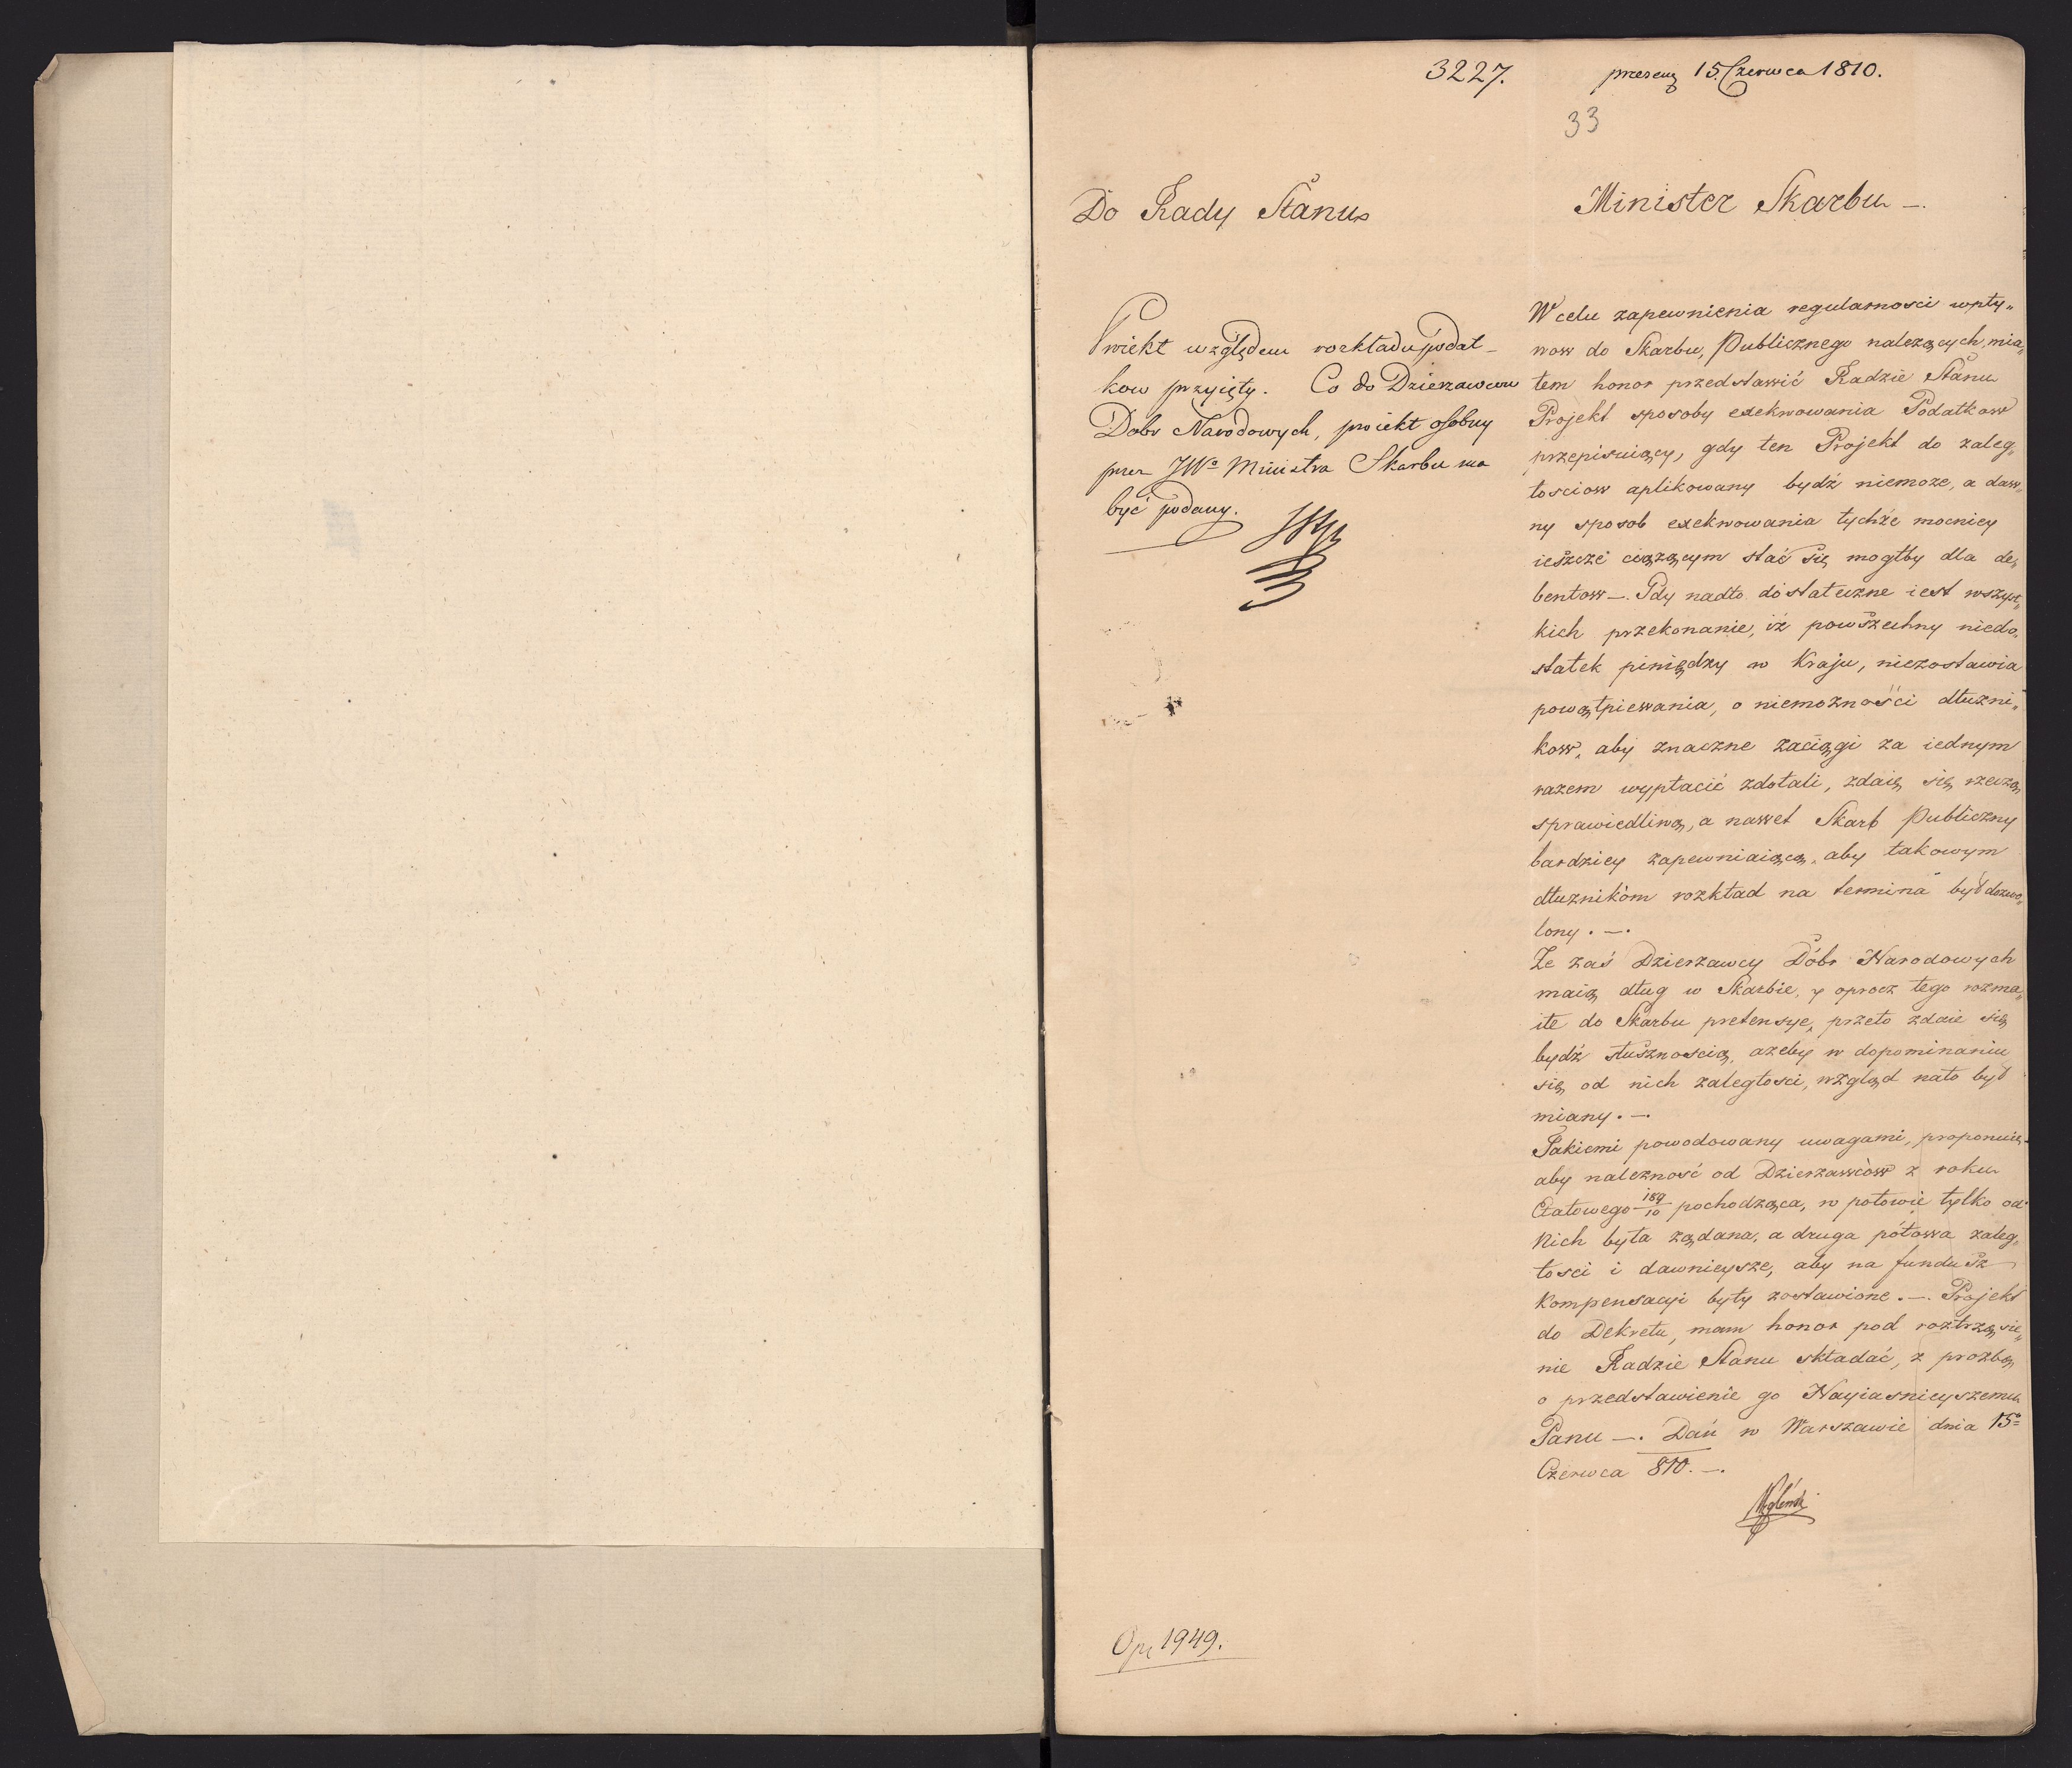 3227.
33
Do Rady Stanu
Proiekt względem rozkładu podat-
kow przyięty. Co do Dzierzawcow
Dobr Narodowych, proiekt osobny
przez JWº Ministra Skarbu ma
być podany.
Op. 1949.
15. Czerwca 1810.
Minister Skarbu —.
W celu zapewnienia regularnosci wpły„
wow do Skarbu, Publicznego nalezących, mia„
tem honor przedstawić Radzie Stanu
Projekt sposoby exekwowania Podatkow
przepisuiący, gdy ten Projekt do zaleg„
łosciow aplikowany bydź niemoze, a daw„
ny sposob exekwowania tychże mocniey
ieszcze ciązącym stać się mogłby dla de„
bentow —. Gdy nadto dostateczne iest wszyst„
kich przekonanie, iż powszechny niedo„
statek pieniędzy w Kraju, niezostawia
powątpiewania, o niemoznosći dłuzni„
kow, aby znaczne zaciągi za iednym
razem wypłacić zdołali, zdaię się rzeczą
sprawiedliwą, a nawet Skarb Publiczny
bardziey zapewniaiącą, aby takowym
dłuznikóm rozkład na termina był dozwo„
lony. —.
Ze zaś Dzierzawcy Dóbr Narodowych
maią dług w Skarbie, y oprocz tego rozma„
ite do Skarbu pretensye, przeto zdaie się
bydź słusznoscią, azeby w dopominaniu
się od nich zaległosci, wzgląd nato był
miany. —.
Takiemi powodowany uwagami, proponuię
aby nalezność od Dzierzawców z roku
Etatowego 189/10 pochodząca, w połowie tylko od
Nich była ządana, a druga połowa zaleg„
łosci i dawnieysze, aby na fundusz
Kompensacyi były zostawione. —. Projekt
do Dekretu, mam honor pod roztrząsie„
nie Radzie Stanu składać, z prozbą
o przedstawienie go Nayiasnieyszemu
Panu —. Dań w Warszawie dnia 15º
Czerwca 810. —.
Węgleński